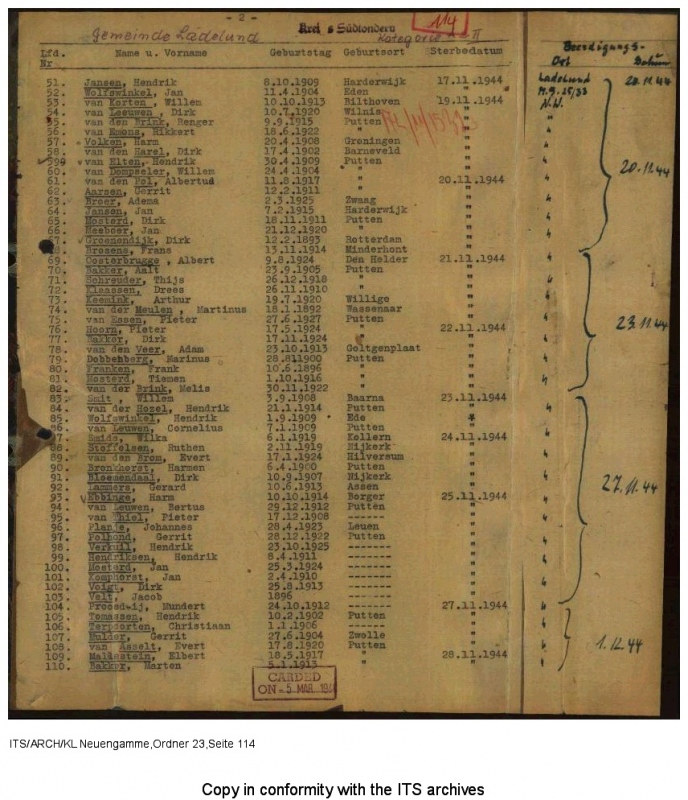 - 2 -
Gemeinde Lädelund
Kreis Südtondern
Kategorie II
114
Lfd. Nr. Name u. Vorname Geburtstag Geburtsort Sterbedatum Beerdigungs- Ort Datum
51. Jansen, Hendrik 8.10.1909 Harderwijk 17.11.1944 Ladelund 20.11.44
52. Wolfswinkel, Jan 11.4.1904 Eden " M.9.25/33
53. van Korten, Willem 10.10.1913 Bilthoven 19.11.1944 N.W.
54. van Leeuwen, Dirk 10.7.1920 Wilnis "
55. van den Brink, Renger 9.9.1915 Putten "
56. van Emous, Rikkert 18.6.1922 " "
57. Volken, Harm 20.4.1908 Groningen "
58. van den Harel, Dirk 17.4.1902 Barneveld "
59. van Elten, Hendrik 30.4.1909 Putten "
60. van Dompseler, Willem 24.4.1904 " " 20.11.44
61. van den Pol, Albertus 11.8.1917 " 20.11.1944
62. Aarsen, Gerrit 12.2.1911 " "
63. Broer, Adema 2.3.1925 Zwaag "
64. Jansen, Jan 7.2.1915 Harderwijk "
65. Mosterd, Dirk 18.11.1911 Putten "
66. Meeboer, Jan 21.12.1920 " "
67. Groenendijk, Dirk 12.2.1893 Rotterdam "
68. Brosens, Frans 13.11.1914 Minderhont "
69. Oosterbrugge, Albert 9.8.1924 Den Helder 21.11.1944
70. Bakker, Aalt 23.9.1905 Putten "
71. Schreuder, Thijs 26.12.1918 " "
72. Klaassen, Drees 26.11.1910 " "
73. Keemink, Arthur 19.7.1920 Willige "
74. van der Meulen, Martinus 18.1.1892 Wassenaar "
75. van Essen, Pieter 27.6.1927 Putten " 23.11.44
76. Hoorn, Pieter 17.5.1924 " 22.11.1944
77. Bakker, Dirk 17.11.1924 " "
78. van den Veer, Adam 23.10.1913 Goltgenplaat "
79. Dobbenberg, Marinus 28.8.1900 Putten "
80. Franken, Frank 10.6.1896 " "
81. Mosterd, Tiemen 1.10.1916 " "
82. van der Brink, Melis 30.11.1922 " "
83. Smit, Willem 3.9.1908 Baarna 23.11.1944
84. van der Hozel, Hendrik 21.1.1914 Putten "
85. Wolfswinkel, Hendrik 1.9.1909 Ede "
86. van Leuwen, Cornelius 7.1.1909 Putten "
87. Smids, Wilka 6.1.1919 Kellern 24.11.1944
88. Stoffelsen, Ruthen 2.11.1919 Nijkerk "
89. van den Brom, Evert 17.1.1924 Hilversum "
90. Bronkhorst, Harmen 6.4.1900 Putten "
91. Bloemendaal, Dirk 10.9.1907 Nijkerk "
92. Lammers, Gerard 10.6.1913 Assen " 27.11.44
93. Ebbinge, Harm 10.10.1914 Borger 25.11.1944
94. van Leuwen, Bertus 29.12.1912 Putten "
95. van Thiel, Pieter 17.12.1908 ------ "
96. Planje, Johannes 28.4.1923 Leuen "
97. Polhond, Gerrit 28.12.1922 Putten "
98. Verkuil, Hendrik 23.10.1925 ------ "
99. Hendriksen, Hendrik 8.4.1911 ------ "
100. Mosterd, Jan 25.3.1924 ------ "
101. Komphorst, Jan 2.4.1910 ------ "
102. Voigt, Dirk 25.8.1913 ------ "
103. Velt, Jacob 1896 ------ "
104. Proosdij, Hundert 24.10.1912 ------ 27.11.1944
105. Tomassen, Hendrik 10.2.1902 Putten "
106. Terporten, Christiaan 1.1.1906 ------ "
107. Mulder, Gerrit 27.6.1904 Zwolle " 1.12.44
108. van Asselt, Evert 17.8.1920 Putten "
109. Mallestein, Elbert 18.5.1917 " 28.11.1944
110. Bakker, Marten 5.1.1913 " "
CARDED
ON - 5 MAR. 194
ITS/ARCH/KL Neuengamme,Ordner 23,Seite 114
Copy in conformity with the ITS archives